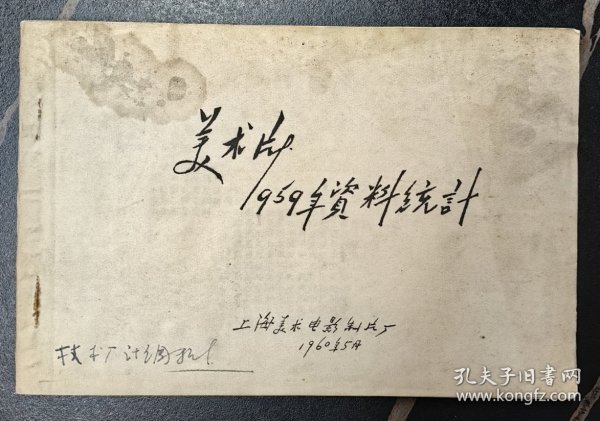 美术片
1959年資料統計
上海美术电影制片厂
1960年5月
技术厂计划
孔夫子旧书网
www.kongfz.com